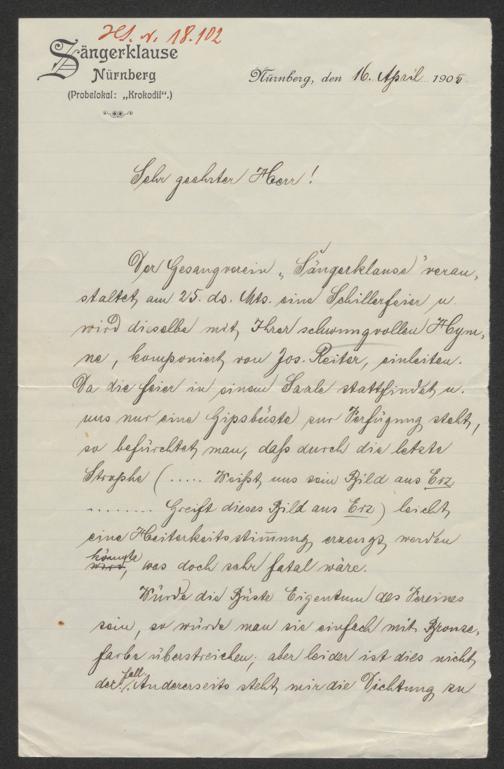 HS. N. 18.102
Sängerklause
Nürnberg
(Probelokal: „Krokodil“.)
Nürnberg, den 16. April 1905
Sehr geehrter Herr!
Der Gesangverein „Sängerklause“ veran-
staltet am 25. ds. Mts. eine Schillerfeier u.
wird dieselbe mit Ihrer schwungvollen Hym-
ne, komponiert von Jos. Reiter, einleiten.
Da die Feier in einem Saale stattfindet u.
uns nur eine Gipsbüste zur Verfügung steht,
so befürchtet man, daß durch die letzte
Strophe (..... Weißt uns sein Bild aus Erz
........ Greift dieses Bild aus Erz) leicht
eine Heiterkeitsstimmung erzeugt werden
könnte
wird, was doch sehr fatal wäre.
Würde die Büste Eigentum des Vereines
sein, so würde man sie einfach mit Bronze-
farbe überstreichen; aber leider ist dies nicht
der Fall. Andererseits steht mir die Dichtung zu